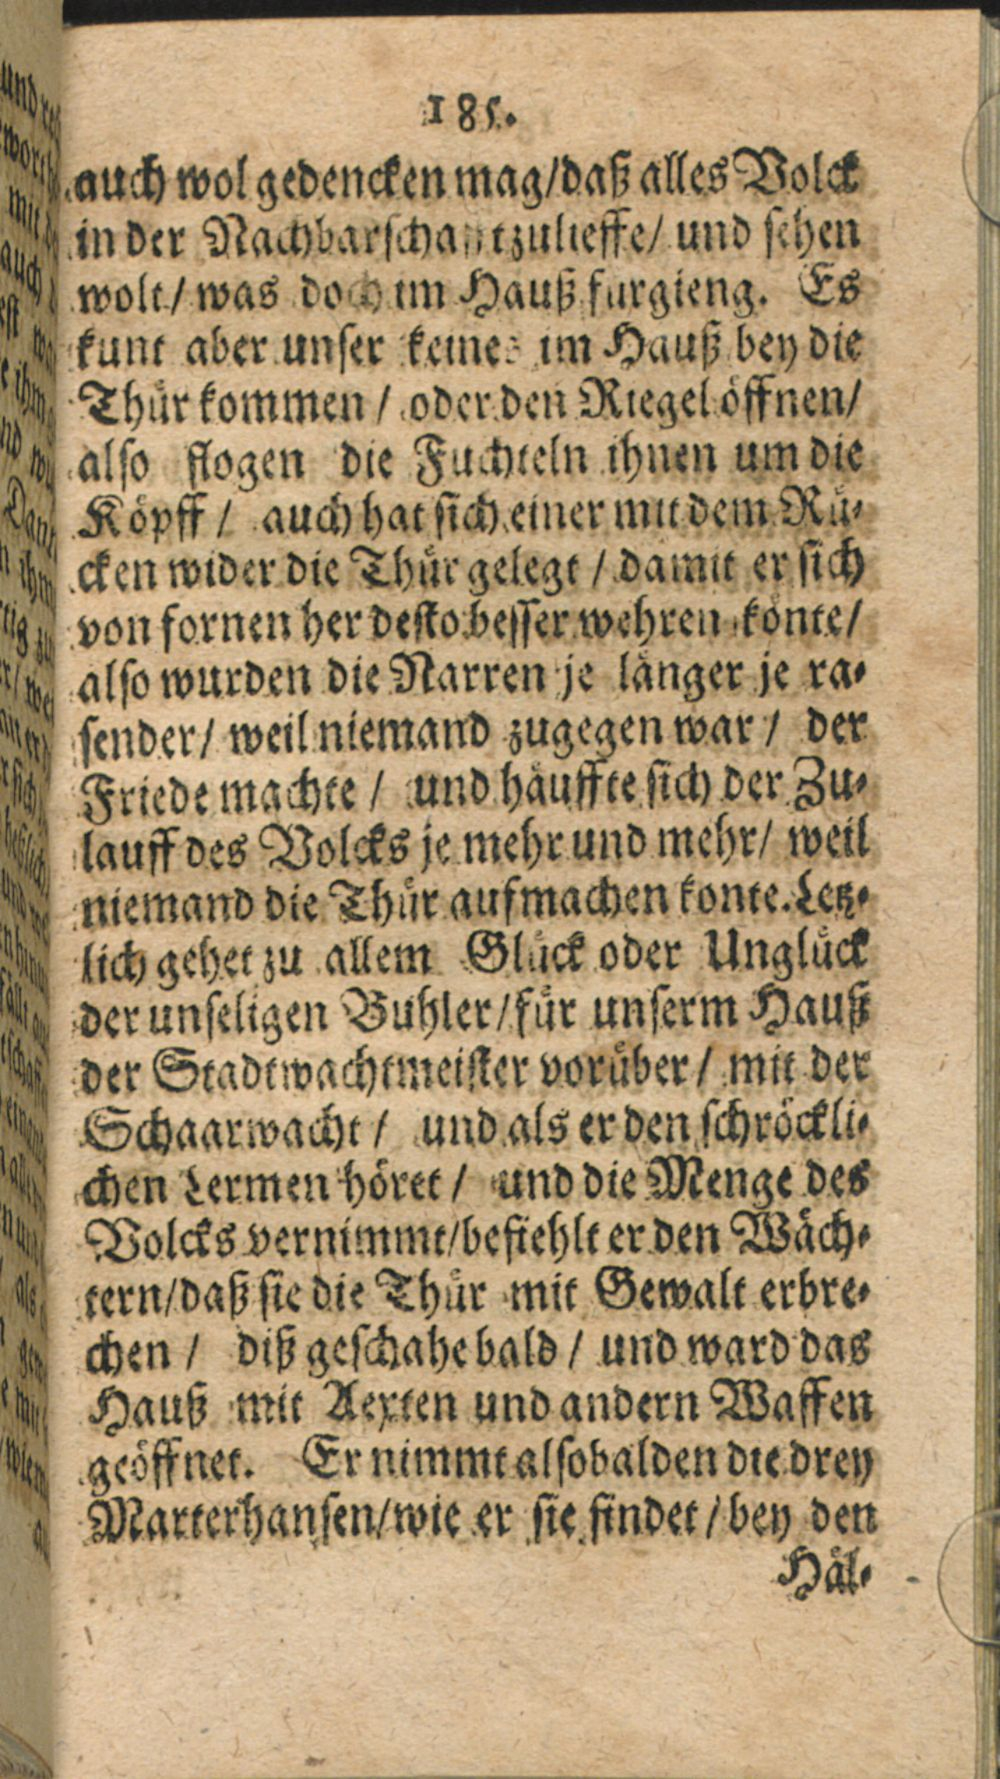 185.
auch wol gedencken mag/daß alles Volck
in der Nachbarschafft zulieffe/ und sehen
wolt/ was doch im Hauß fürgieng. Es
kunt aber unser keiner im Hauß bey die
Thür kommen/ oder den Riegel öffnen/
also flogen die Fuchteln ihnen um die
Köpff/ auch hat sich einer mit dem Rü-
cken wider die Thür gelegt/ damit er sich
von fornen her desto besser wehren könte/
also wurden die Narren je länger je ra-
sender/ weil niemand zugegen war/ der
Friede machte/ und häuffte sich der Zu-
lauff des Volcks je mehr und mehr/ weil
niemand die Thür aufmachen konte. Letz-
lich gehet zu allem Glück oder Unglück
der unseligen Buhler/für unserm Hauß
der Stadtwachtmeister vorüber/ mit der
Schaarwacht/ und als er den schröckli-
chen Lermen höret/ und die Menge des
Volcks vernimmt/befiehlt er den Wäch-
tern/daß sie die Thür mit Gewalt erbre-
chen/ diß geschahe bald/ und ward das
Hauß mit Aexten und andern Waffen
geöffnet. Er nimmt alsobalden die drey
Marterhansen/wie er sie findet/bey den
Häl-